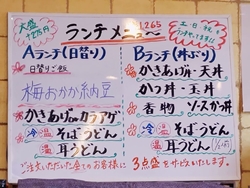 大盛
ランチメニュー
1,265
土・日・祝も
ランチやってます!!
Aランチ(日替り)
日替りご飯
梅おかか納豆
かきあげorカラアゲ
冷 温 そばうどん
温 耳うどん
Bランチ(丼ぶり)
かきあげ丼・天丼
カツ丼・玉丼
香物 ソースカツ丼
冷 温 そばうどん
温 耳うどん
ご注文いただいた全てのお客様に3点盛をサービスいたします。